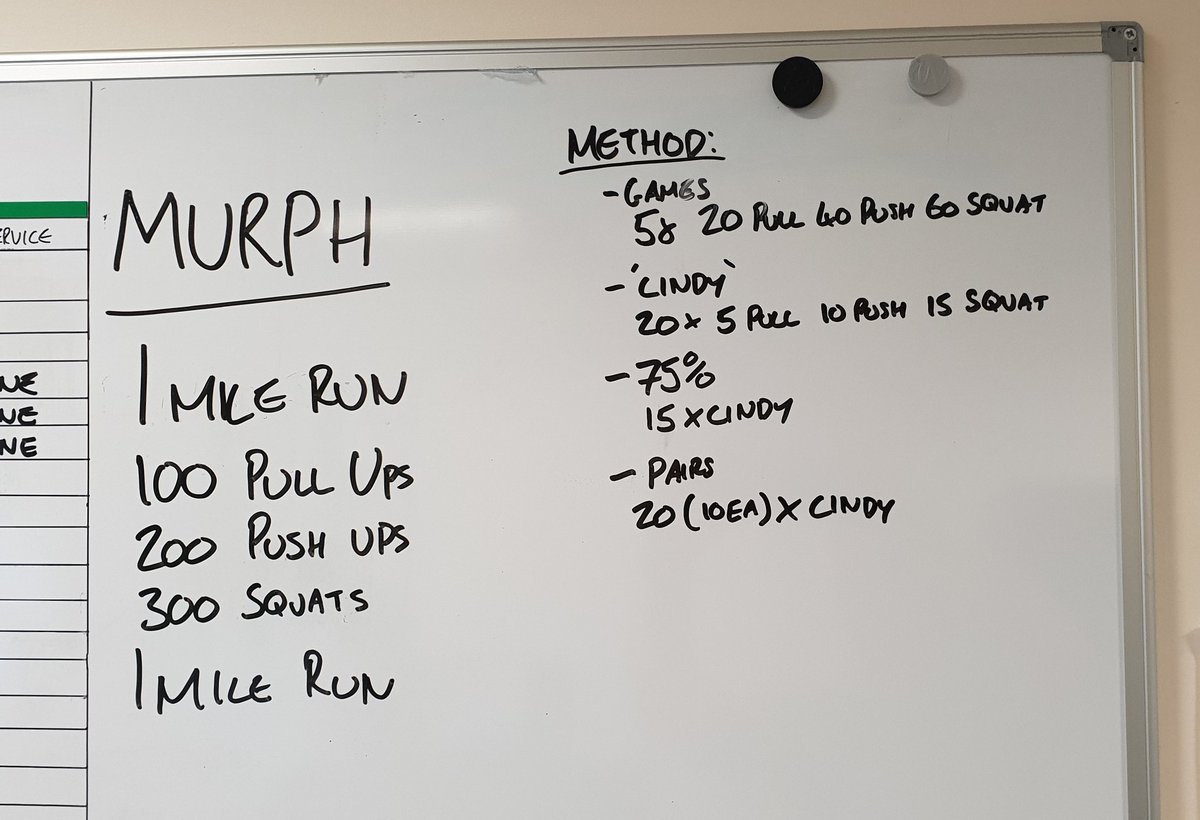 MURPH
1 MILE RUN
100 PULL UPS
200 PUSH UPS
300 SQUATS
1 MILE RUN
METHOD:
- GAMES
5x 20 PULL 40 PUSH 60 SQUAT
- 'CINDY'
20x 5 PULL 10 PUSH 15 SQUAT
- 75%
15 x CINDY
- PAIRS
20 (10EA) x CINDY